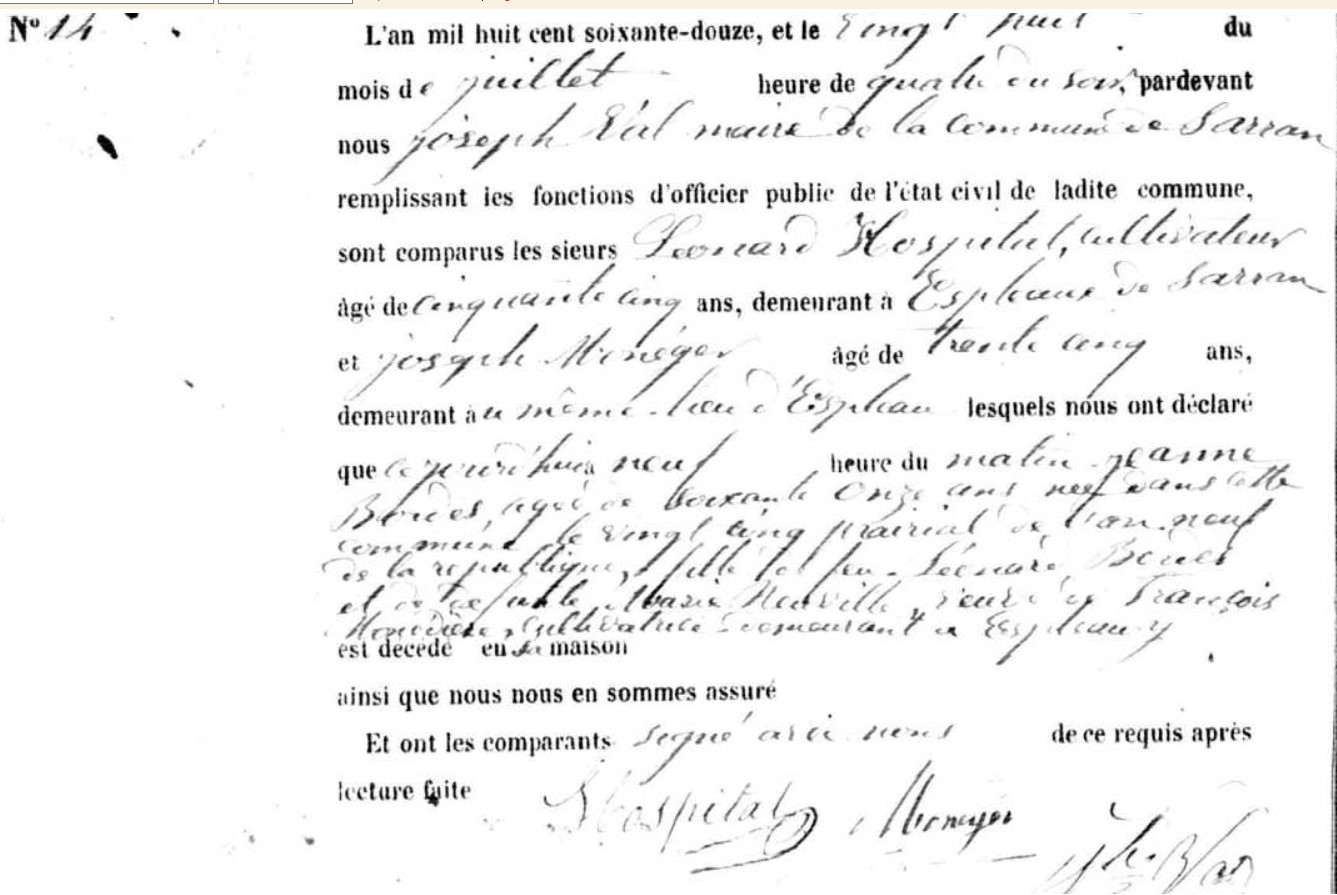 Nº 14
L'an mil huit cent soixante-douze, et le vingt huit du
mois de juillet heure de quatre du soir, pardevant
nous joseph Val maire de la Commune de Sarran
remplissant les fonctions d'officier public de l'état civil de ladite commune,
sont comparus les sieurs Leonard Hospital, cultivateur
âgé de cinquante cinq ans, demeurant à de Sarran
et joseph Monéger âgé de trente cinq ans,
demeurant au même lieu d' lesquels nous ont déclaré
que ce jourd'hui à neuf heure du matin jeanne
Bordes, agée de soixante onze ans neé dans cette
commune le vingt cinq prairial de l'an neuf
de la republique, fille de feu Léonard Bordes
et de defunte Marie Neuville, veuve de François
cultivatrice demeurant a
est décédé en sa maison
ainsi que nous nous en sommes assuré
Et ont les comparants signé avec nous de ce requis après
lecture faite
Hospital Moneger